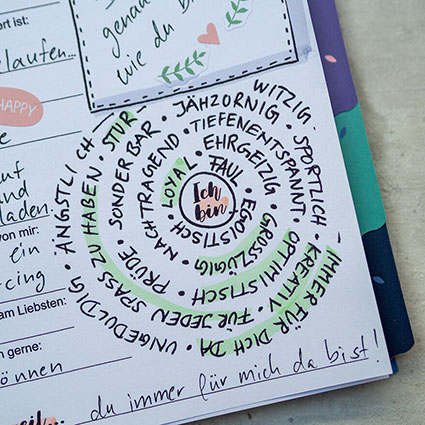 genau
wie du b
ert ist:
laufen...
HAPPY
e
uf
und
laden.
von mir:
ein
-cing
am Liebsten:
n gerne:
önnen
Ich
bin
LOYAL · FAUL · EGOISTISCH ·
NACHTRAGEND · EHRGEIZIG · GROSSZÜGIG ·
SONDERBAR · TIEFENENTSPANNT · OPTIMISTISCH · PRÜDE ·
STUR · JÄHZORNIG · WITZIG · SPORTLICH · KREATIV · FÜR JEDEN SPASS ZU HABEN ·
IMMER FÜR DICH DA · UNGEDULDIG · ÄNGSTLICH
eil... du immer für mich da bist!